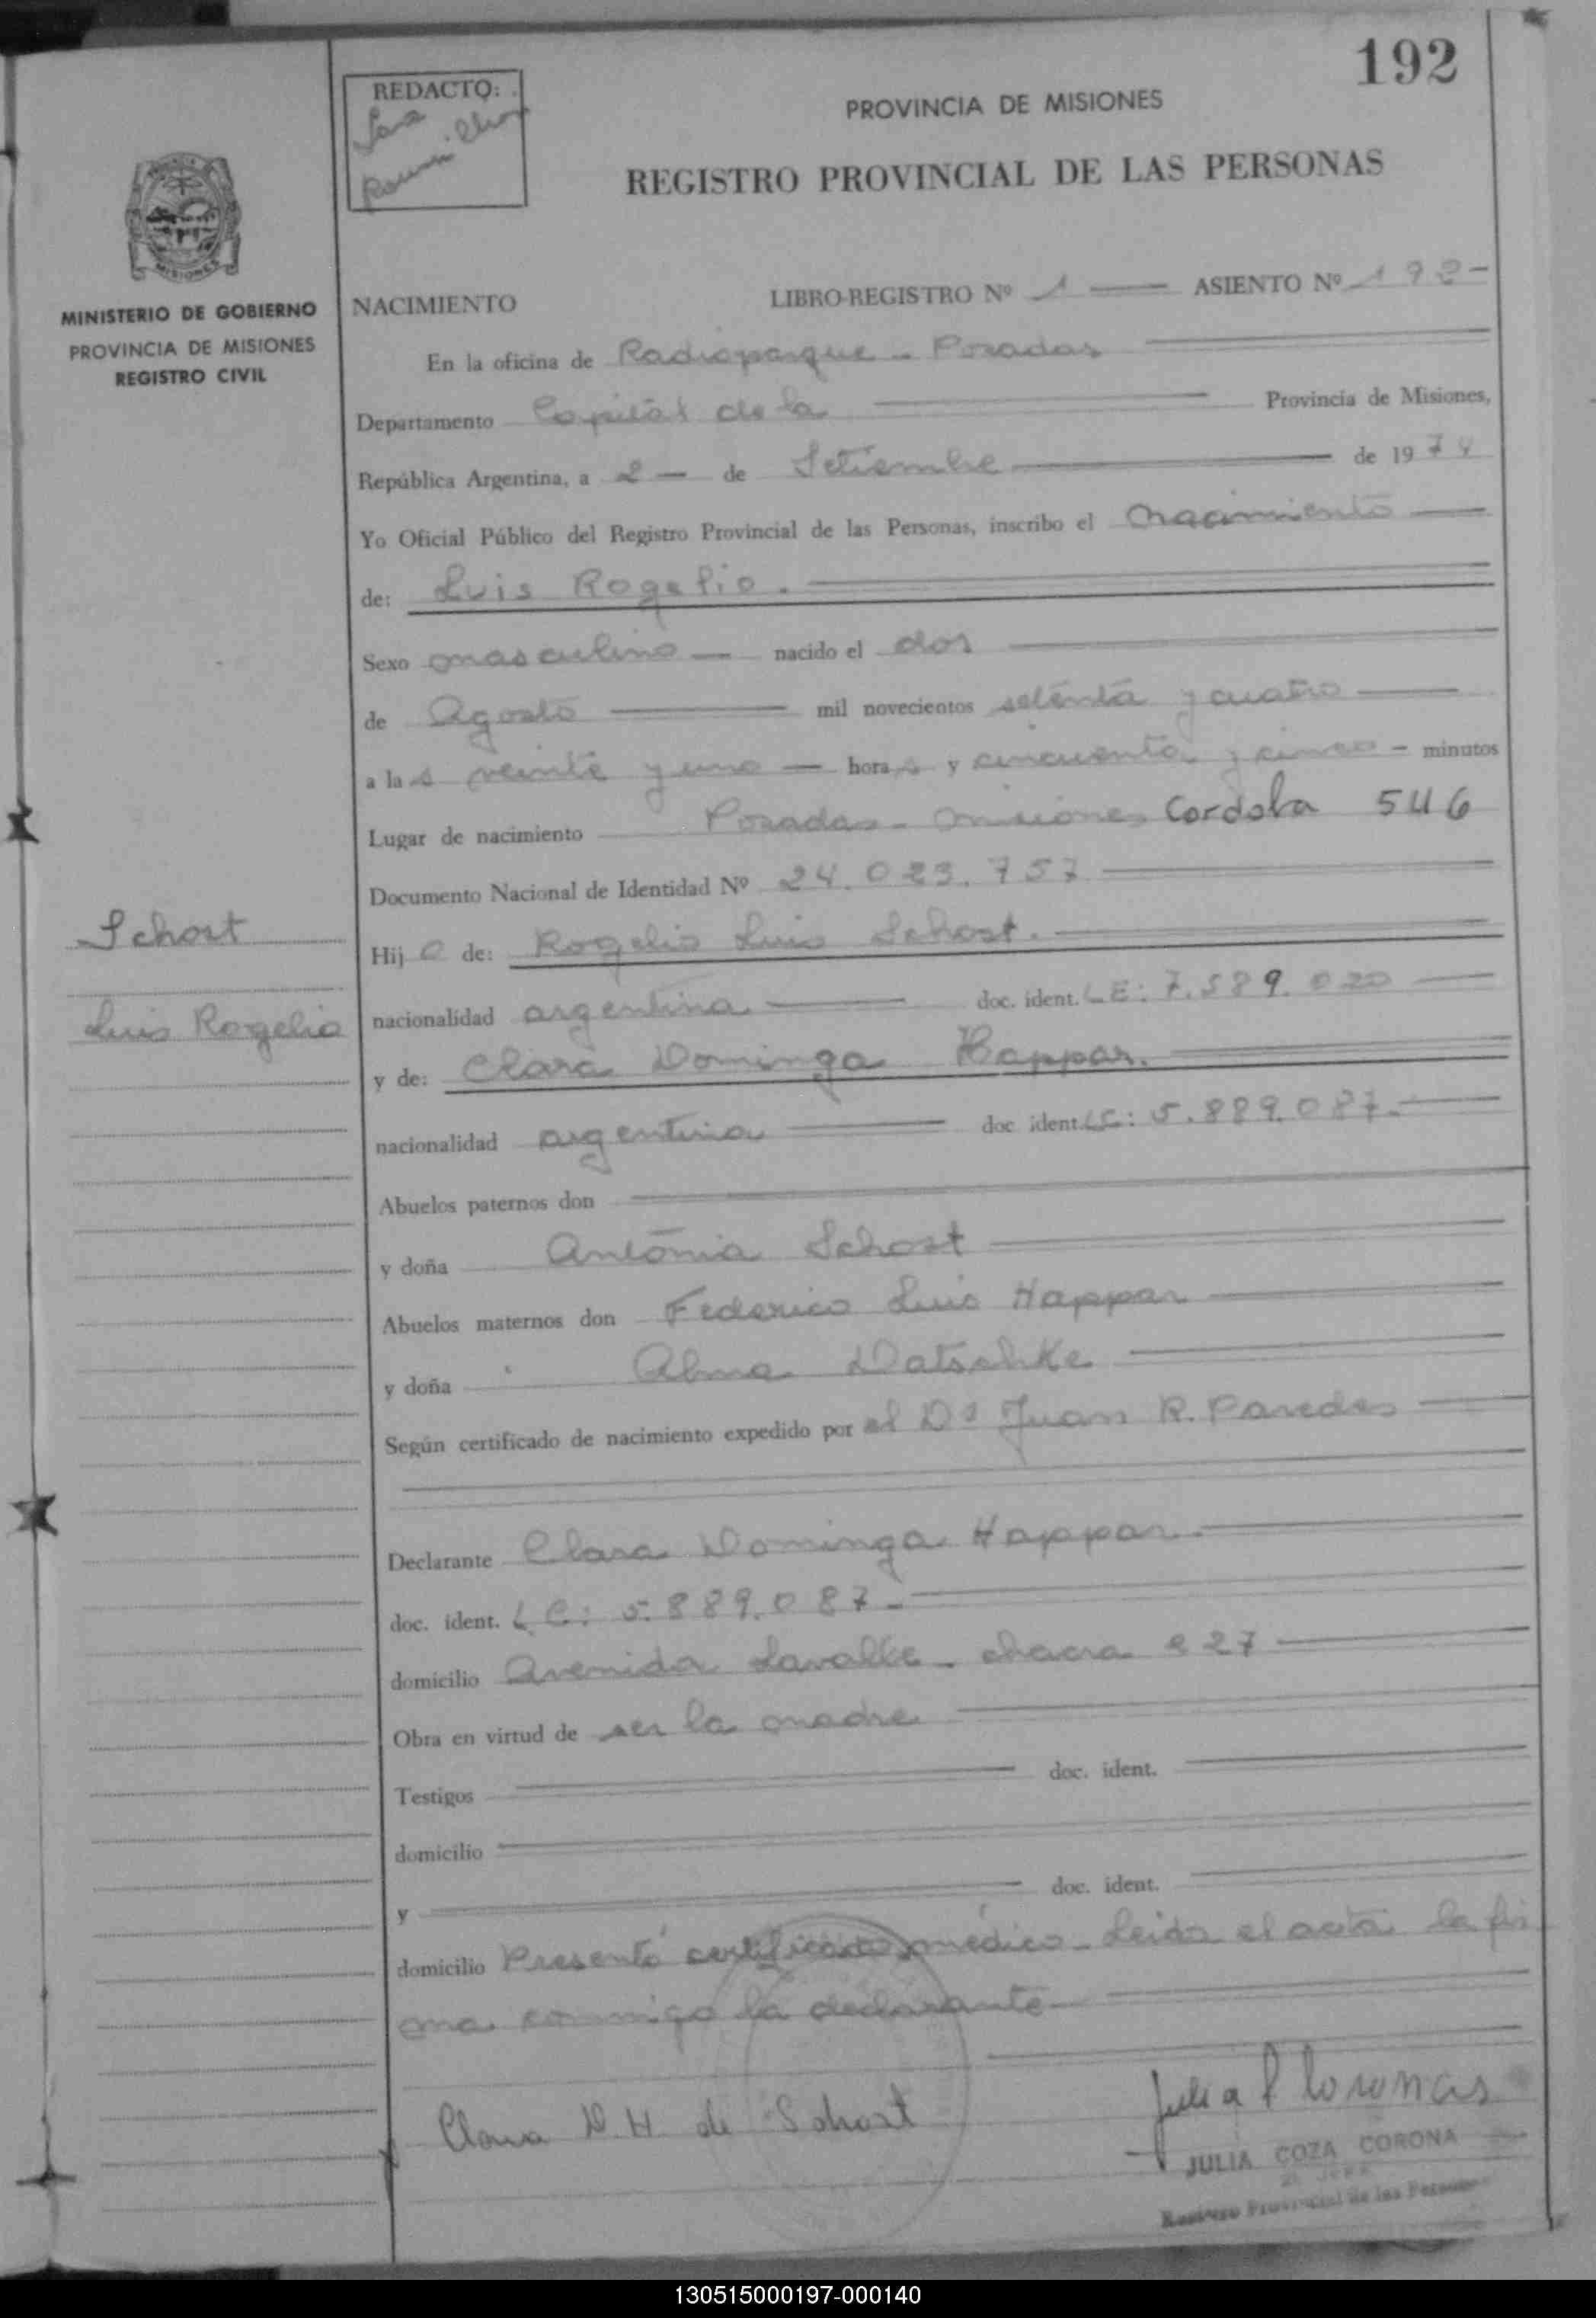 192
REDACTO:
PROVINCIA DE MISIONES
REGISTRO PROVINCIAL DE LAS PERSONAS
MISIONES
MINISTERIO DE GOBIERNO
PROVINCIA DE MISIONES
REGISTRO CIVIL
NACIMIENTO LIBRO-REGISTRO Nº 1 — ASIENTO Nº 192-
En la oficina de Radioparque - Posadas
Departamento Capital de la Provincia de Misiones,
República Argentina, a 2 — de Setiembre de 1974
Yo Oficial Público del Registro Provincial de las Personas, inscribo el Nacimiento
de: Luis Rogelio.
Sexo masculino — nacido el dos
de Agosto mil novecientos setenta y cuatro
a las veinte y una — horas y cincuenta y cinco - minutos
Lugar de nacimiento Posadas - Misiones Cordoba 546
Documento Nacional de Identidad Nº 24.023.757
Schost
Luis Rogelio
Hijo de: Rogelio Luis Schost.
nacionalidad argentina doc. ident. LE: 7.589.020
y de: Clara Dominga Happar.
nacionalidad argentina doc ident. LC: 5.889.087.
Abuelos paternos don
y doña Antonia Schost
Abuelos maternos don Federico Luis Happar
y doña Alma Datschke
Según certificado de nacimiento expedido por el Dr Juan R. Paredes
Declarante Clara Dominga Happar.
doc. ident. LC: 5.889.087-
domicilio Avenida Lavalle - chacra 227
Obra en virtud de ser la madre
Testigos doc. ident.
domicilio
y doc. ident.
domicilio Presentó certificado médico - Leida el acta la fir
ma conmigo la declarante
Clara D. H. de Schost
JULIA COZA CORONA
Registro Provincial de las Personas
130515000197-000140